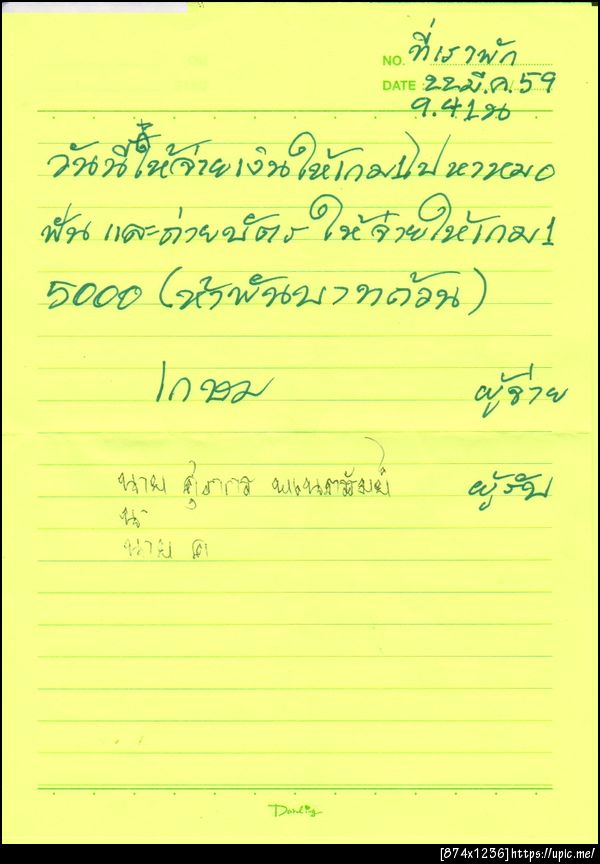 NO. ที่เราพัก
DATE 22 มี.ค. 59
9.41 น
วันนี้ให้จ่ายเงินให้เกม1ไปหาหมอ
ฟัน และถ่ายบัตร ให้จ่ายให้เกม1
5000 (ห้าพันบาทถ้วน)
เกษม ผู้จ่าย
นาย ผู้รับ
น
นาย ค
Darling
[874x1236]https://upic.me/